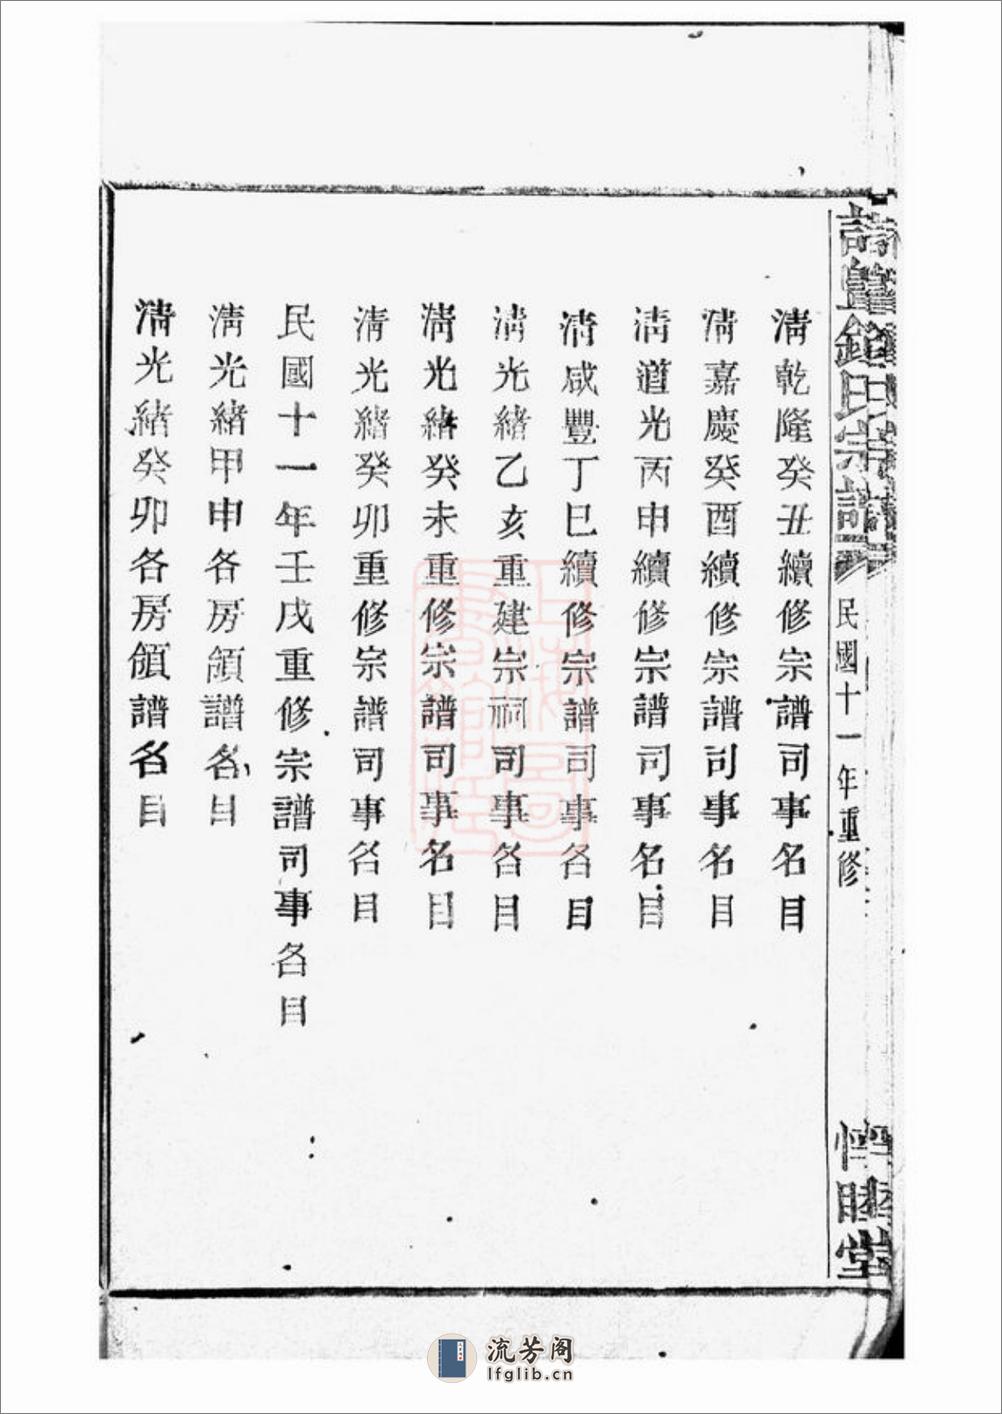 民國十一年重修
睦堂
清乾隆癸丑續修宗譜司事名目
清嘉慶癸酉續修宗譜司事名目
清道光丙申續修宗譜司事名目
清咸豐丁巳續修宗譜司事名目
清光緒乙亥重建宗祠司事名目
清光緒癸未重修宗譜司事名目
清光緒癸卯重修宗譜司事名目
民國十一年壬戌重修宗譜司事名目
清光緒甲申各房領譜名目
清光緒癸卯各房領譜名目
流芳阁
lfglib.cn